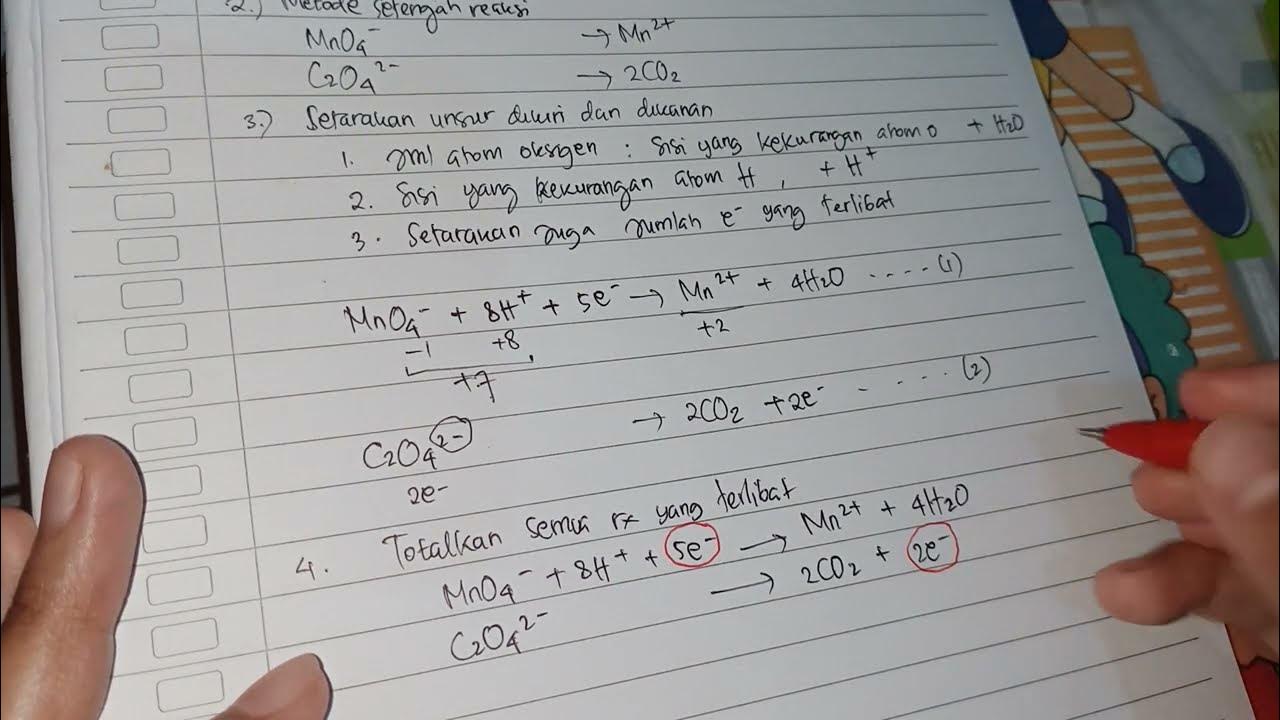 2.) Metode setengah reaksi
MnO₄⁻ → Mn²⁺
C₂O₄²⁻ → 2CO₂
3.) Setarakan unsur dikiri dan dikanan
1. Jml atom oksigen : Sisi yang kekurangan atom O + H₂O
2. Sisi yang kekurangan atom H , + H⁺
3. Setarakan juga jumlah e⁻ yang terlibat
MnO₄⁻ + 8H⁺ + 5e⁻ → Mn²⁺ + 4H₂O ....(1)
-1 +8 +2
+7
C₂O₄²⁻ → 2CO₂ + 2e⁻ - ....(2)
2e⁻
4. Totalkan semua rx yang terlibat
MnO₄⁻ + 8H⁺ + 5e⁻ → Mn²⁺ + 4H₂O
C₂O₄²⁻ → 2CO₂ + 2e⁻